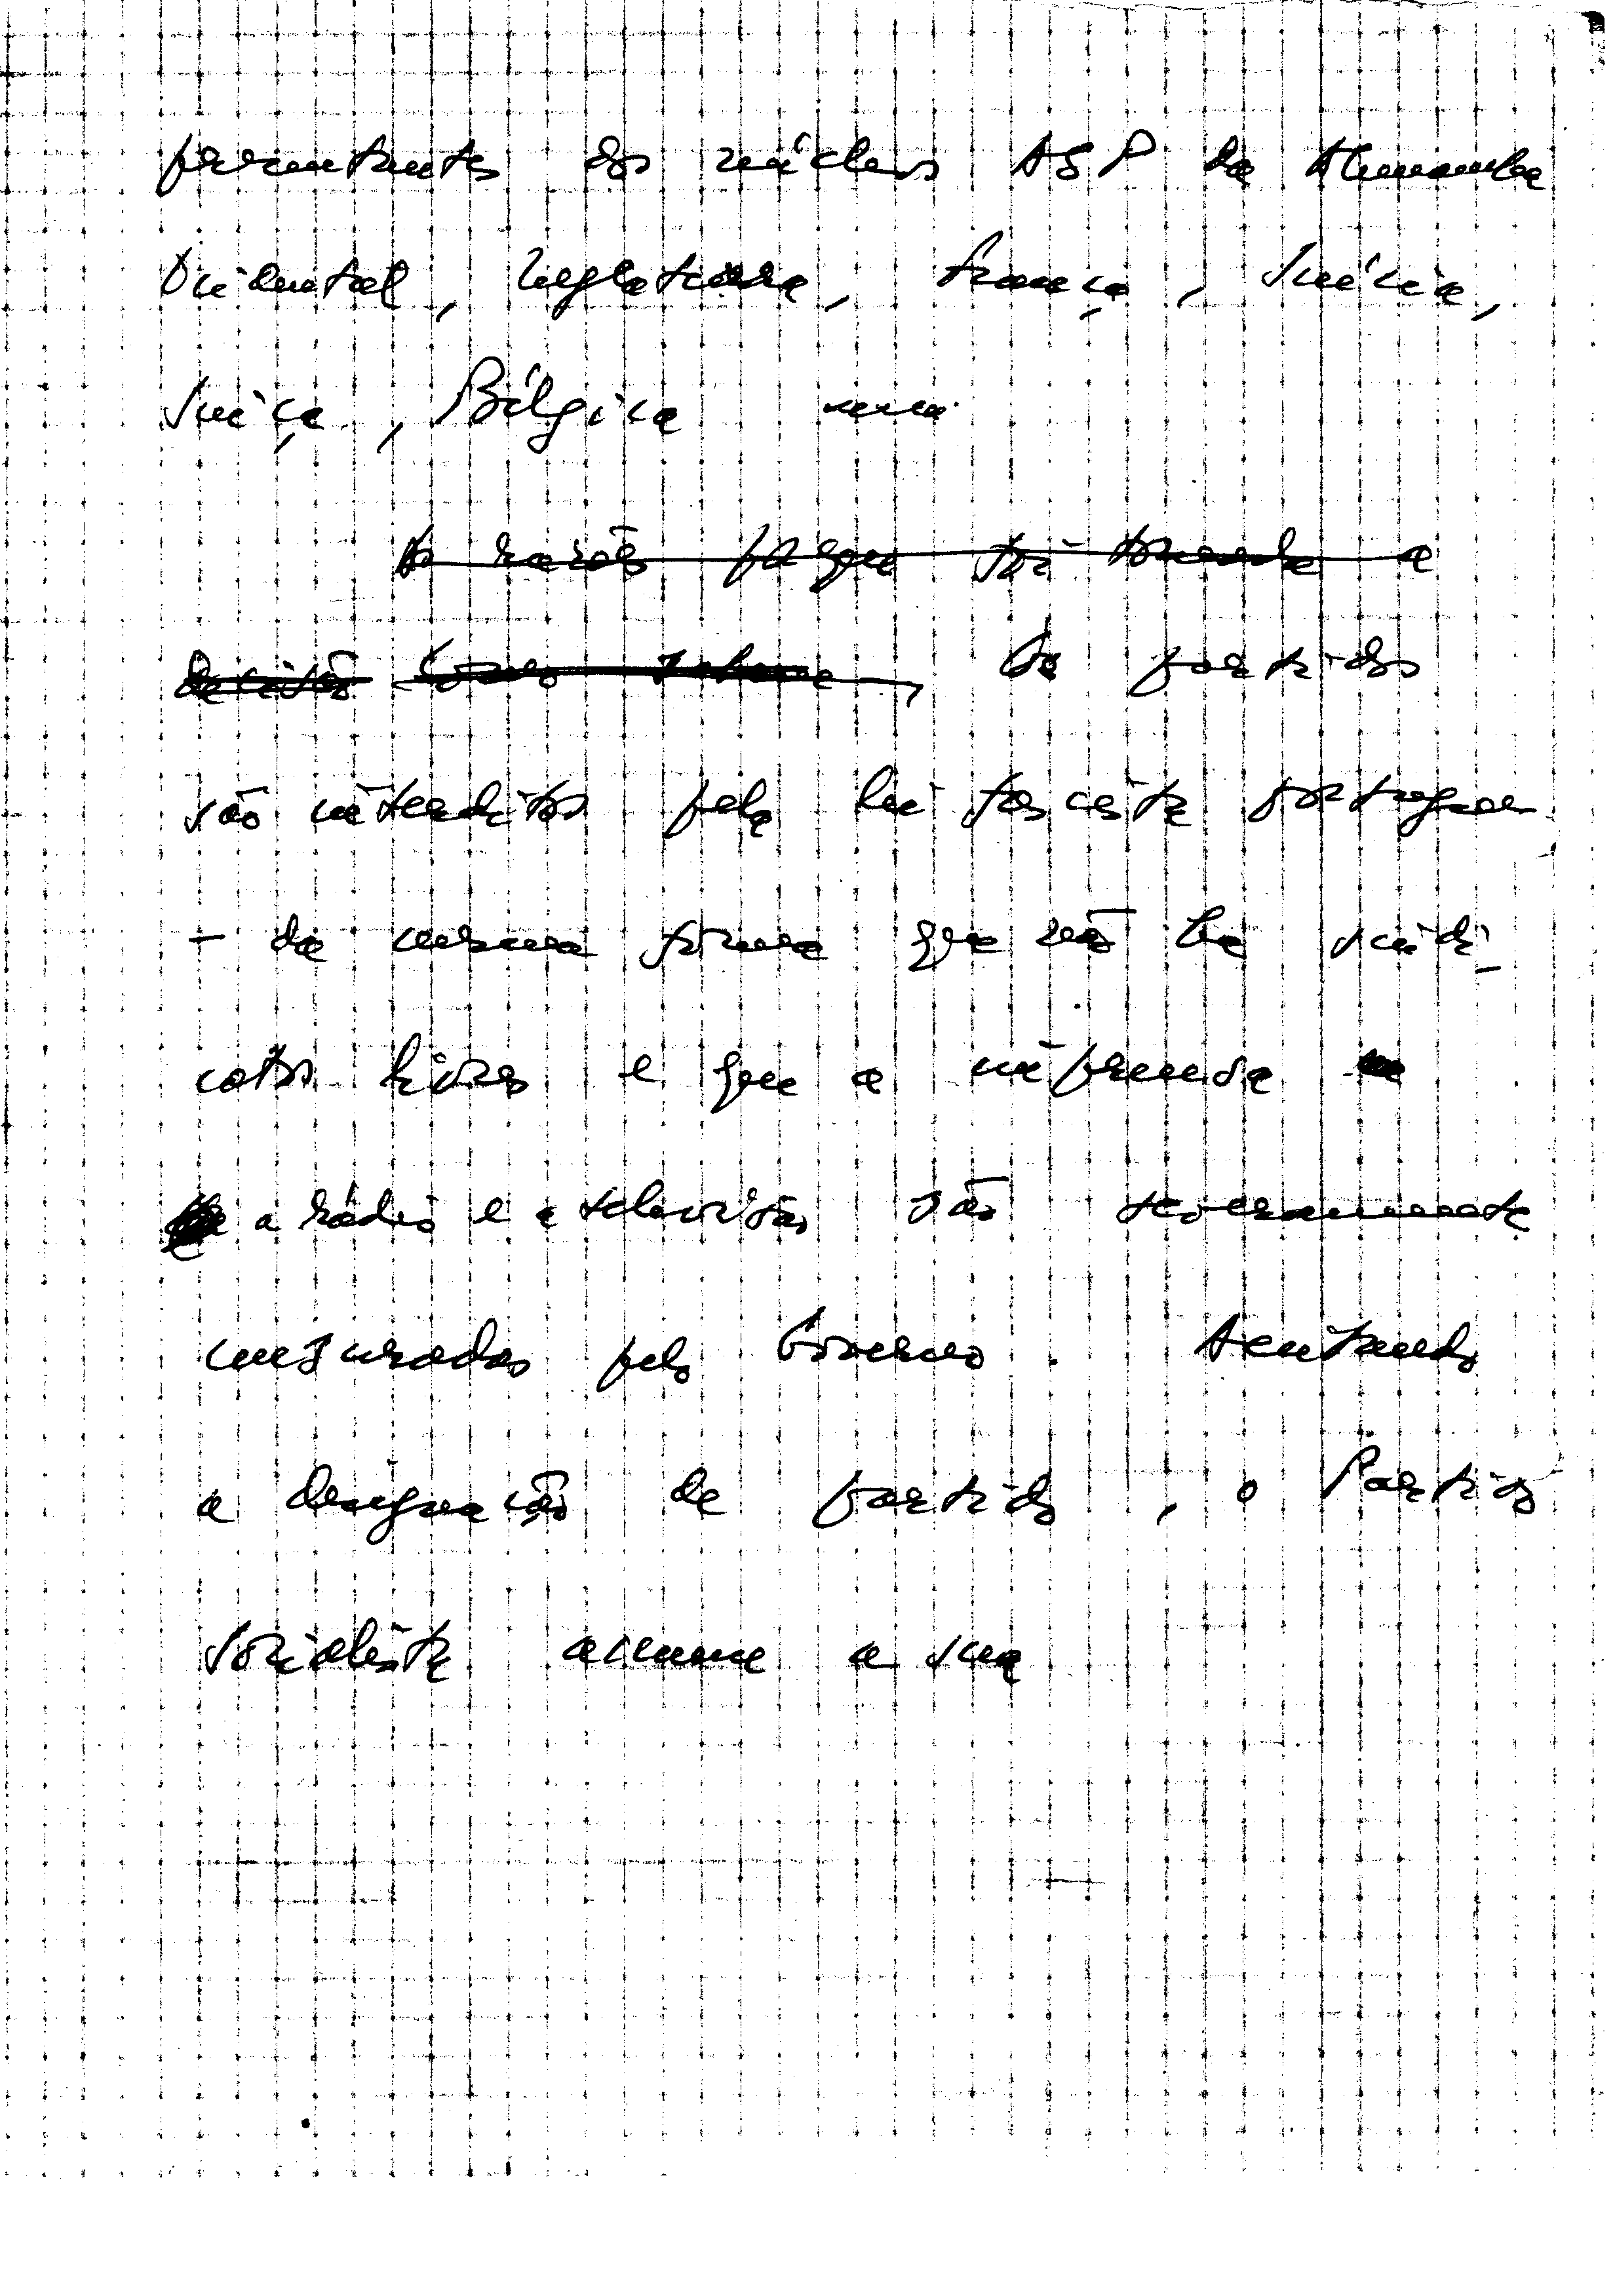 presentantes dos núcleos ASP da Alemanha
Ocidental, Inglaterra, França, Suécia,
Suiça, Bélgica
A razão porque foi tomada a
decisão Os partidos
são interditos pela lei fascista portuguesa
- da mesma forma que não há sindi_
catos livres e que a imprensa
a rádio e a televisão são severamente
censuradas pelo Governo. Tentando
a designação de partido, o Partido
Socialista assume a sua